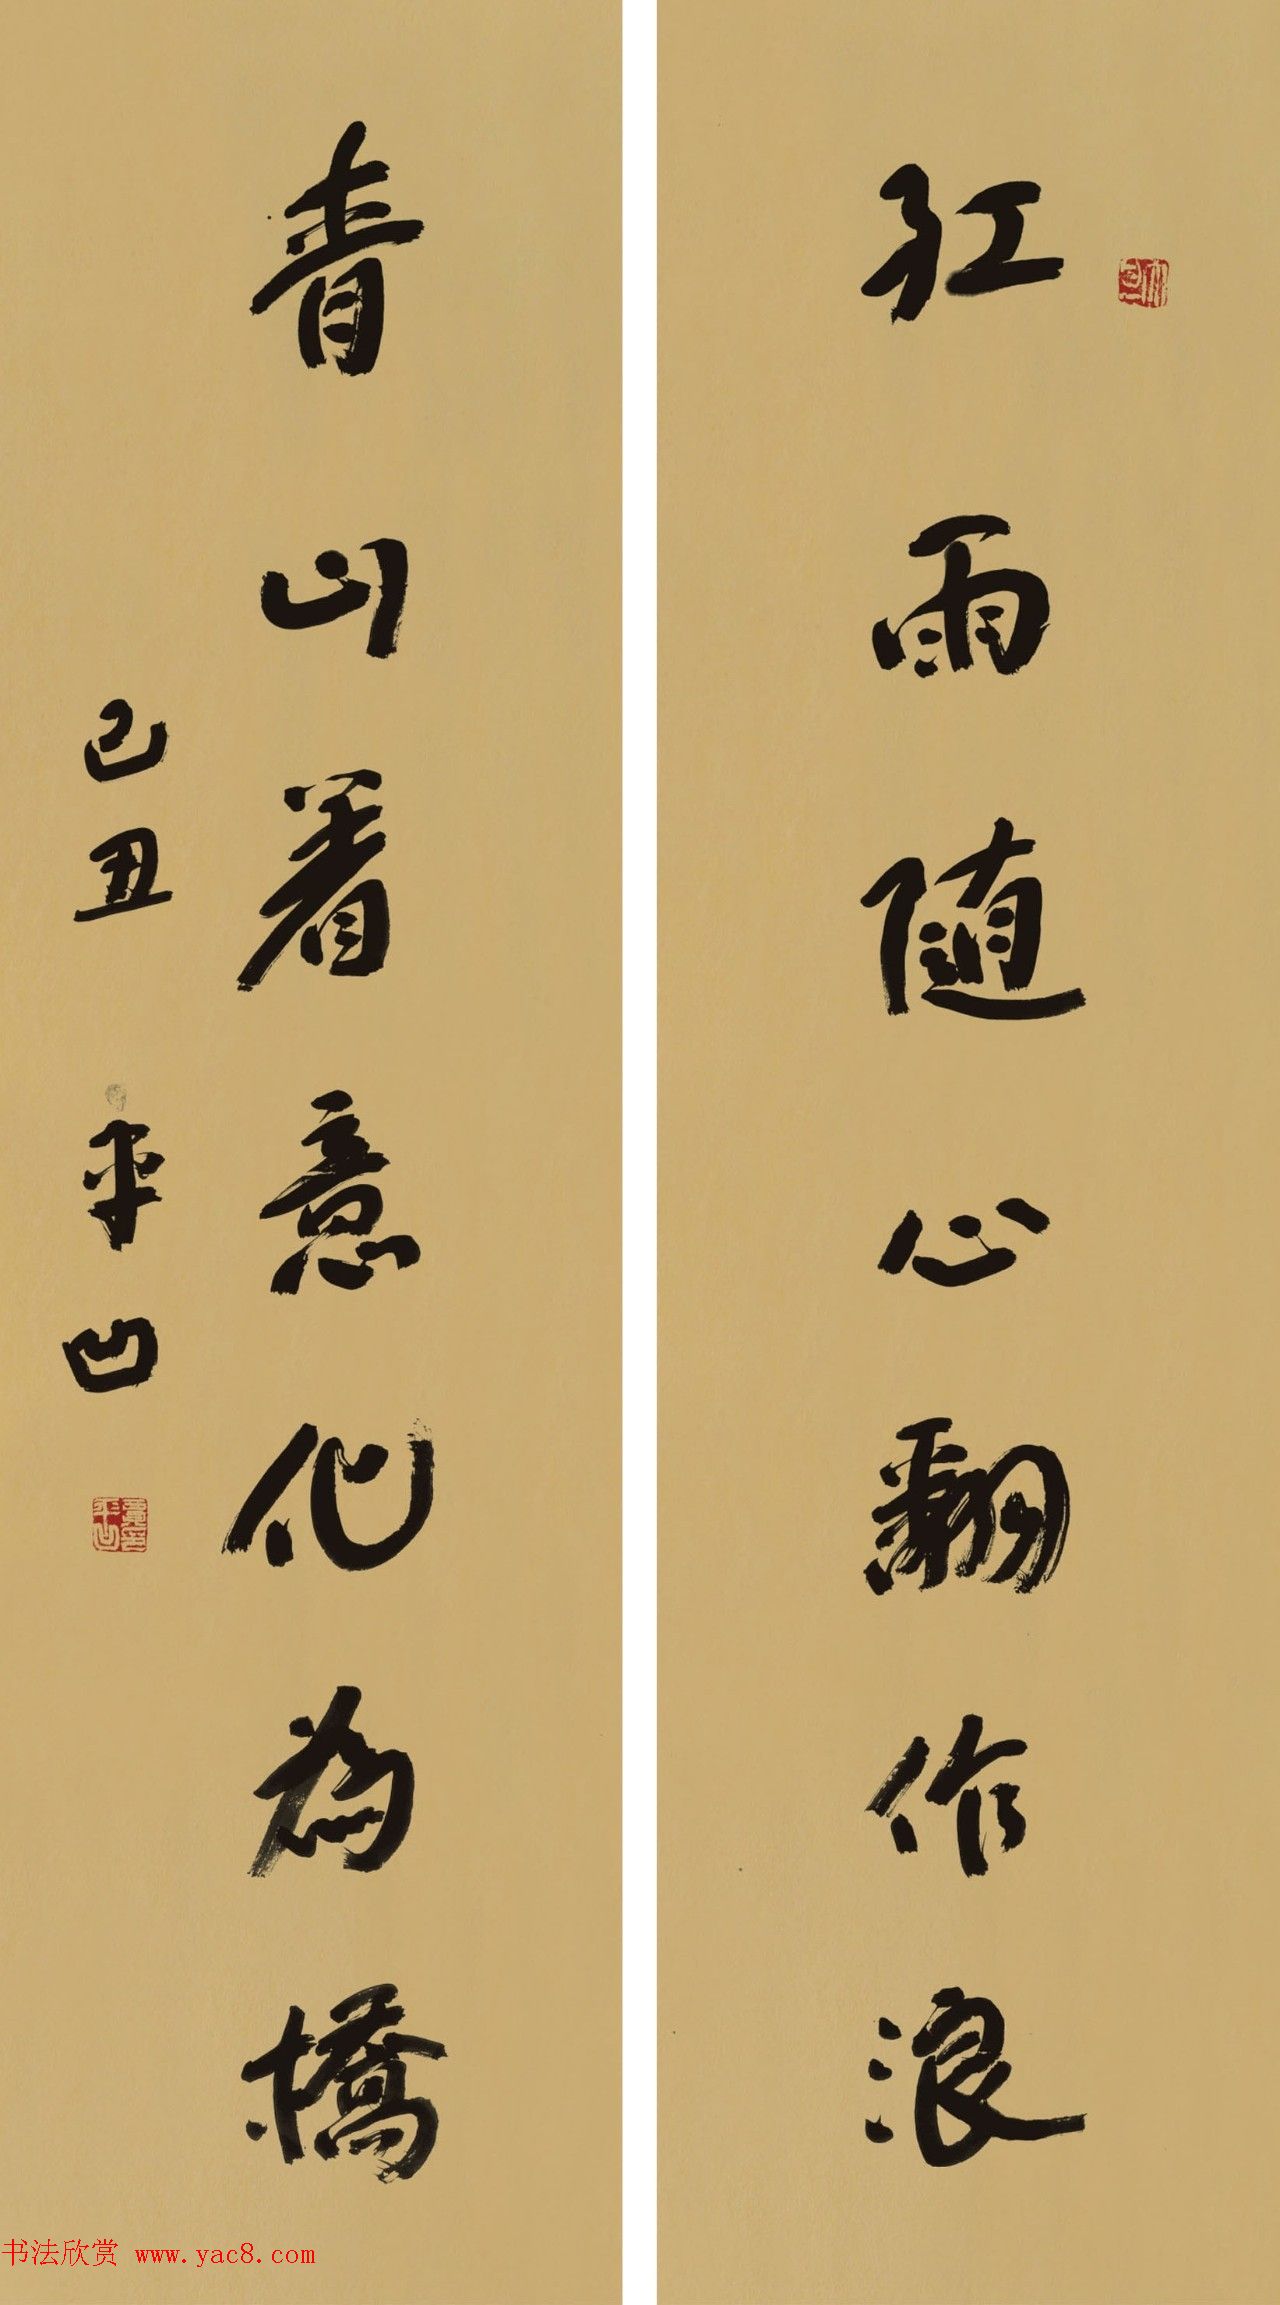 红雨随心翻作浪
青山着意化為橋
己丑 平凹
书法欣赏 www.yac8.com